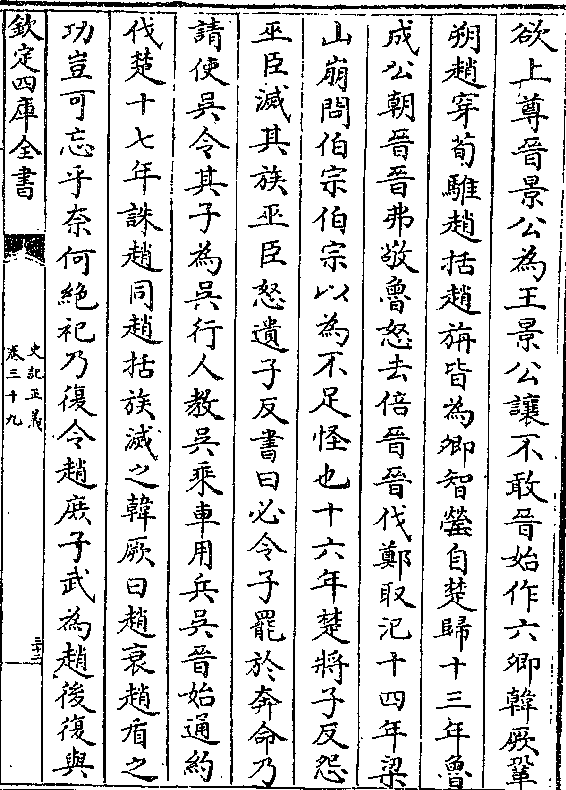 欲上尊晉景公為王景公讓不敢晉始作六卿韓厥鞏
朔趙穿荀騅趙括趙旃皆為卿智罃自楚歸十三年魯
成公朝晉晉弗敬魯怒去倍晉晉伐鄭取汜十四年梁
山崩問伯宗伯宗以為不足怪也十六年楚將子反怨
巫臣滅其族巫臣怒遺子反書曰必令子罷於奔命乃
請使吳令其子為吳行人教吳乘車用兵吳晉始通約
伐楚十七年誅趙同趙括族滅之韓厥曰趙衰趙盾之
功豈可忘乎奈何絶祀乃復令趙庶子武為趙後復與
欽定四庫全書
史記正義
卷三十九
三十二